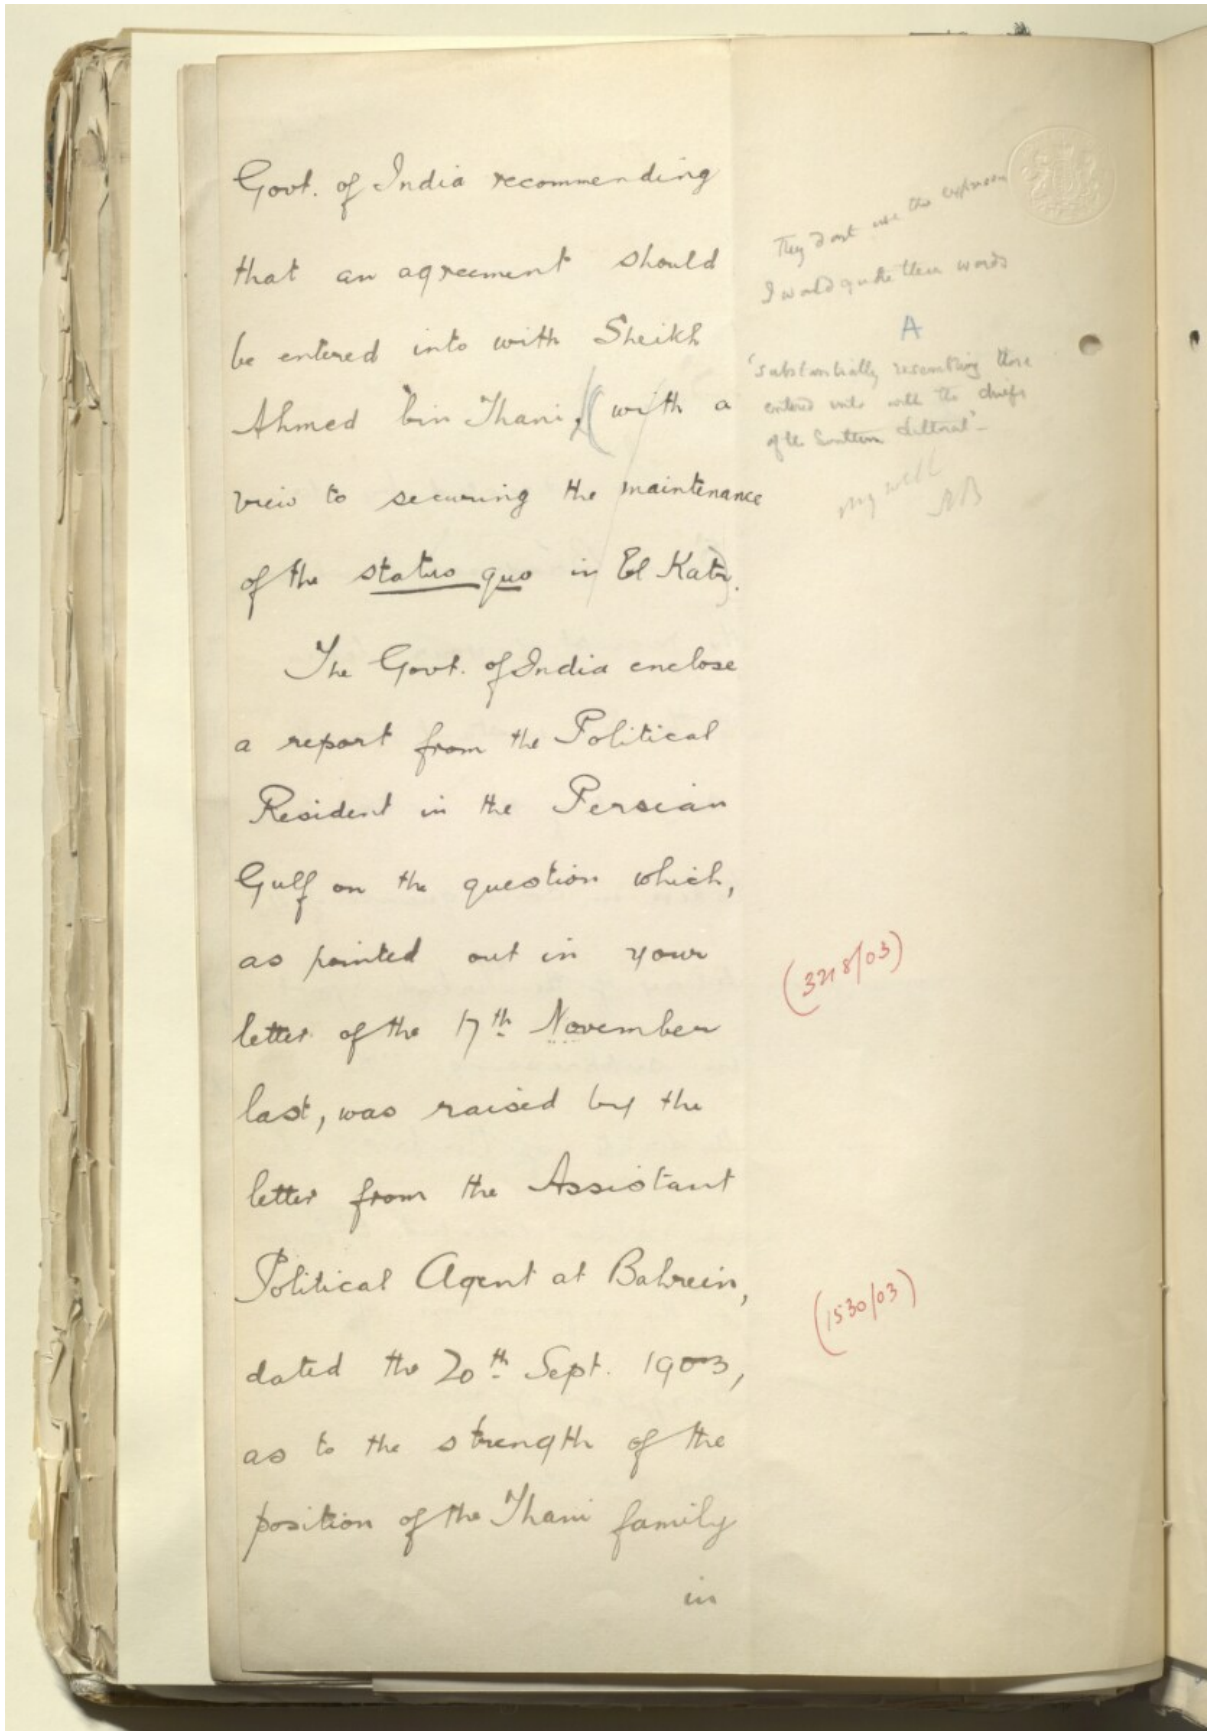 Govt. of India recommending
that an agreement should
be entered into with Sheikh
Ahmed bin Thani, (with a
view to securing the maintenance
of the status quo in El Katr).
The Govt. of India enclose
a report from the Political
Resident in the Persian
Gulf on the question which,
as pointed out in your
letter of the 17th November
last, was raised by the
letter from the Assistant
Political Agent at Bahrein,
dated the 20th Sept. 1903,
as to the strength of the
position of the Thani family
in
They dont use this expression
I would quote their words
A
'substantially resembling those
entered into with the chiefs
of the Southern littoral'-
(3218/03)
(1530/03)